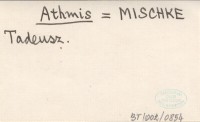 Athmis = MISCHKE
Tadeusz.
ST/008/0854